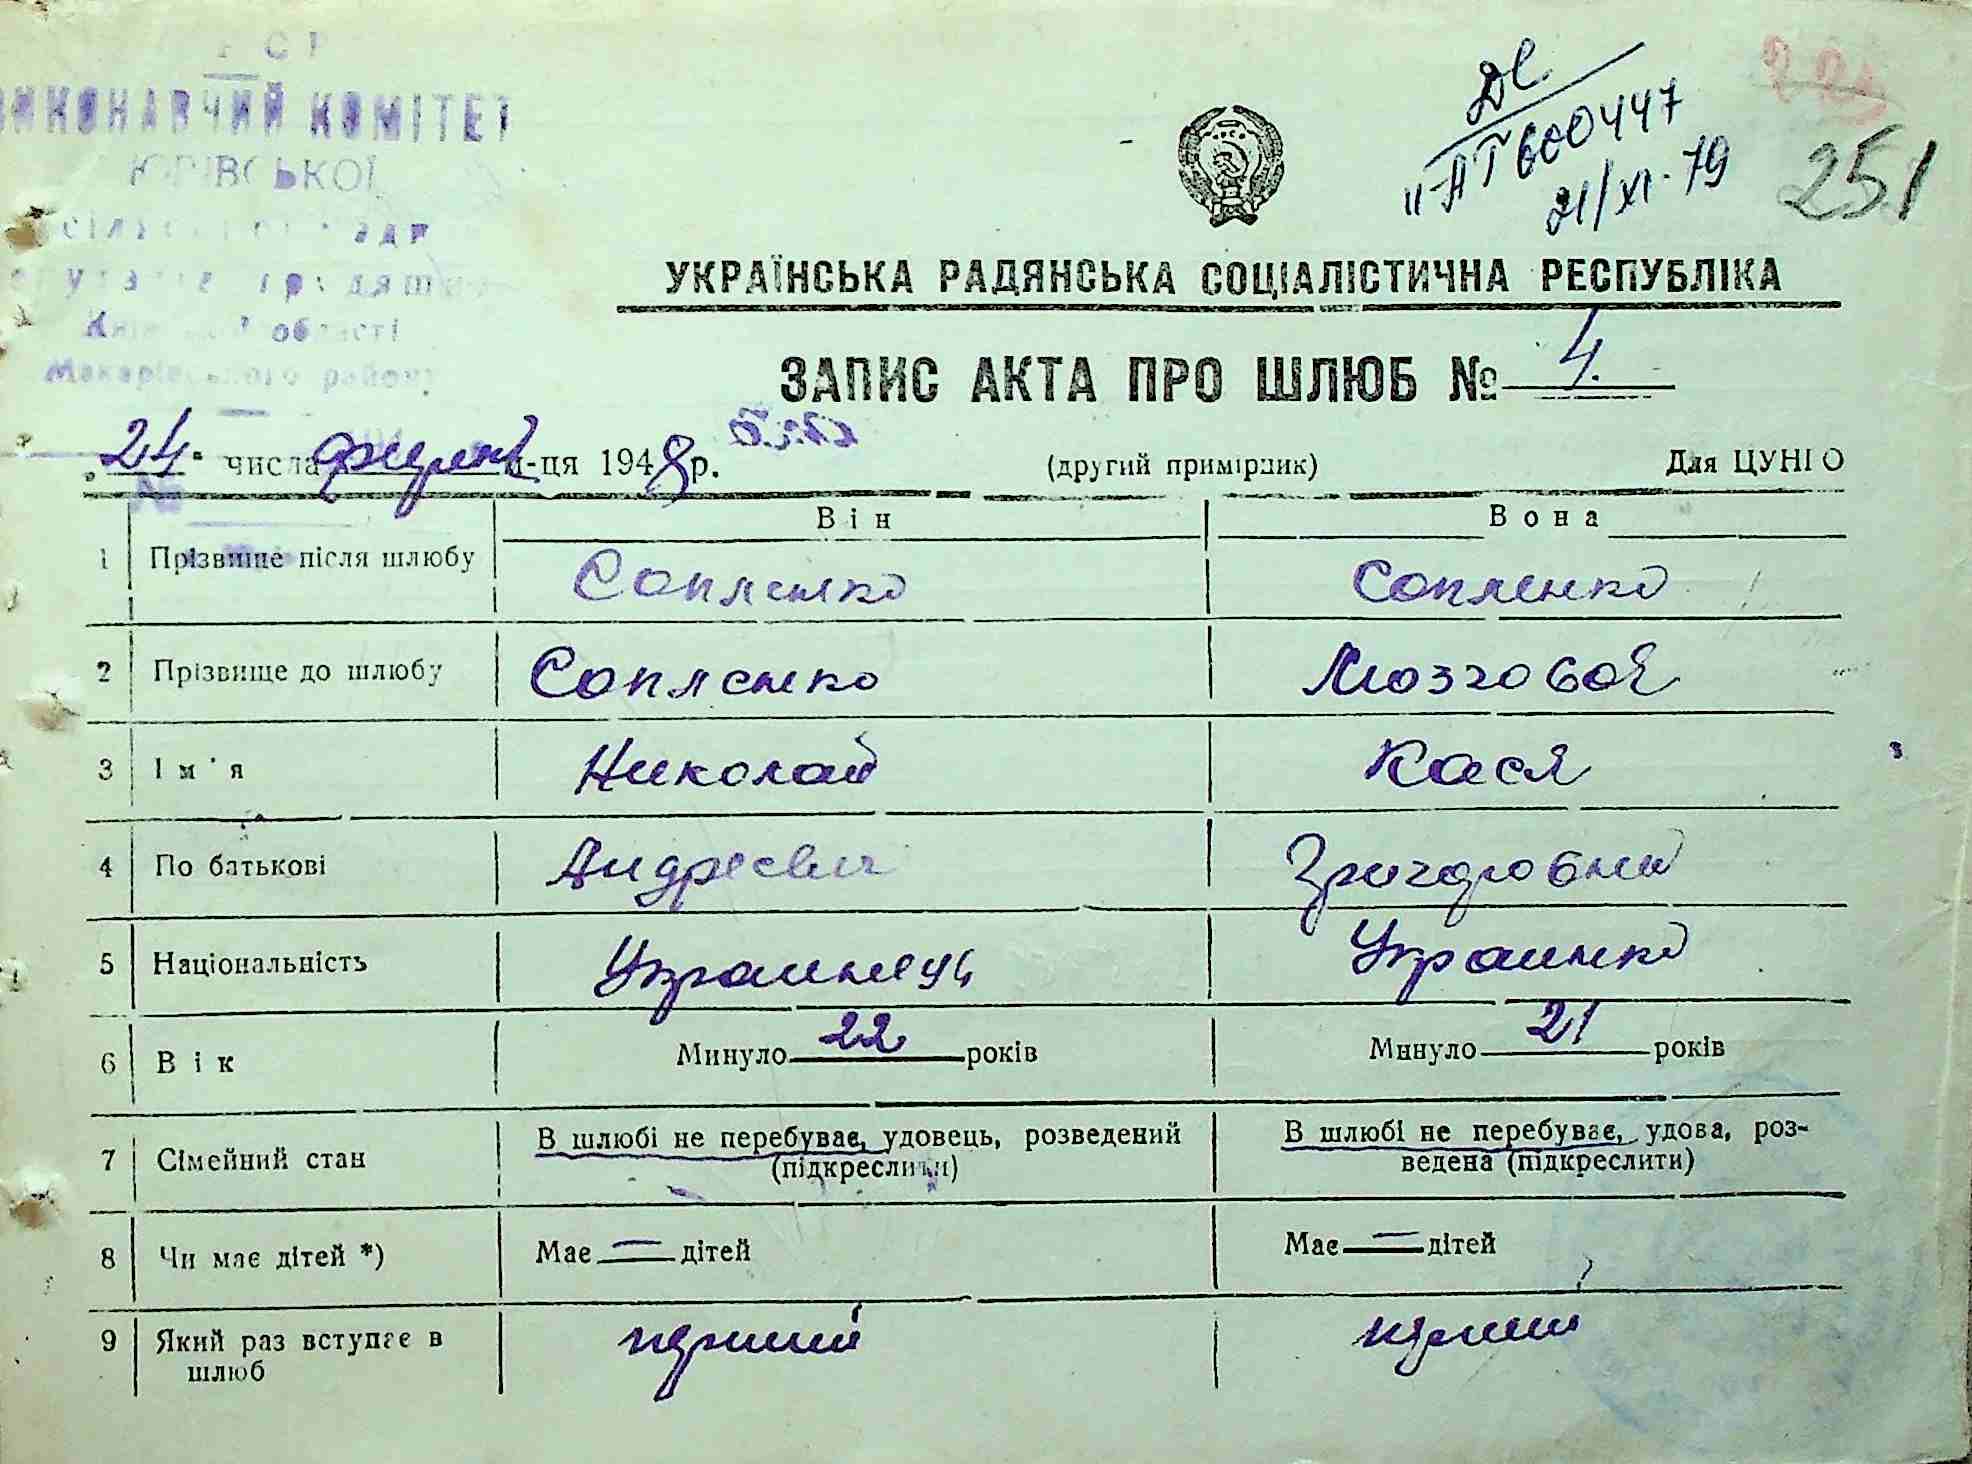 РСР
ВИКОНАВЧИЙ КОМІТЕТ
ЮРІВСЬКОЇ
області
Макарівського району
ДС
"ПТ 600447
21/XI-79
251
УКРАЇНСЬКА РАДЯНСЬКА СОЦІАЛІСТИЧНА РЕСПУБЛІКА
ЗАПИС АКТА ПРО ШЛЮБ № 4.
"24" числа м-ця 1948 р. (другий примірник) Для ЦУНГО
Він Вона
1 Прізвище після шлюбу Сопленко Сопленко
2 Прізвище до шлюбу Сопленко Мозговоя
3 Ім'я Николай Кася
4 По батькові Андреевич Григоровни
5 Національність Украинець Украинка
6 Вік Минуло 22 років Минуло 21 років
7 Сімейний стан В шлюбі не перебуває, удовець, розведений (підкреслити) В шлюбі не перебуває, удова, роз-
ведена (підкреслити)
8 Чи має дітей *) Має — дітей Має — дітей
9 Який раз вступає в перший перший
шлюб